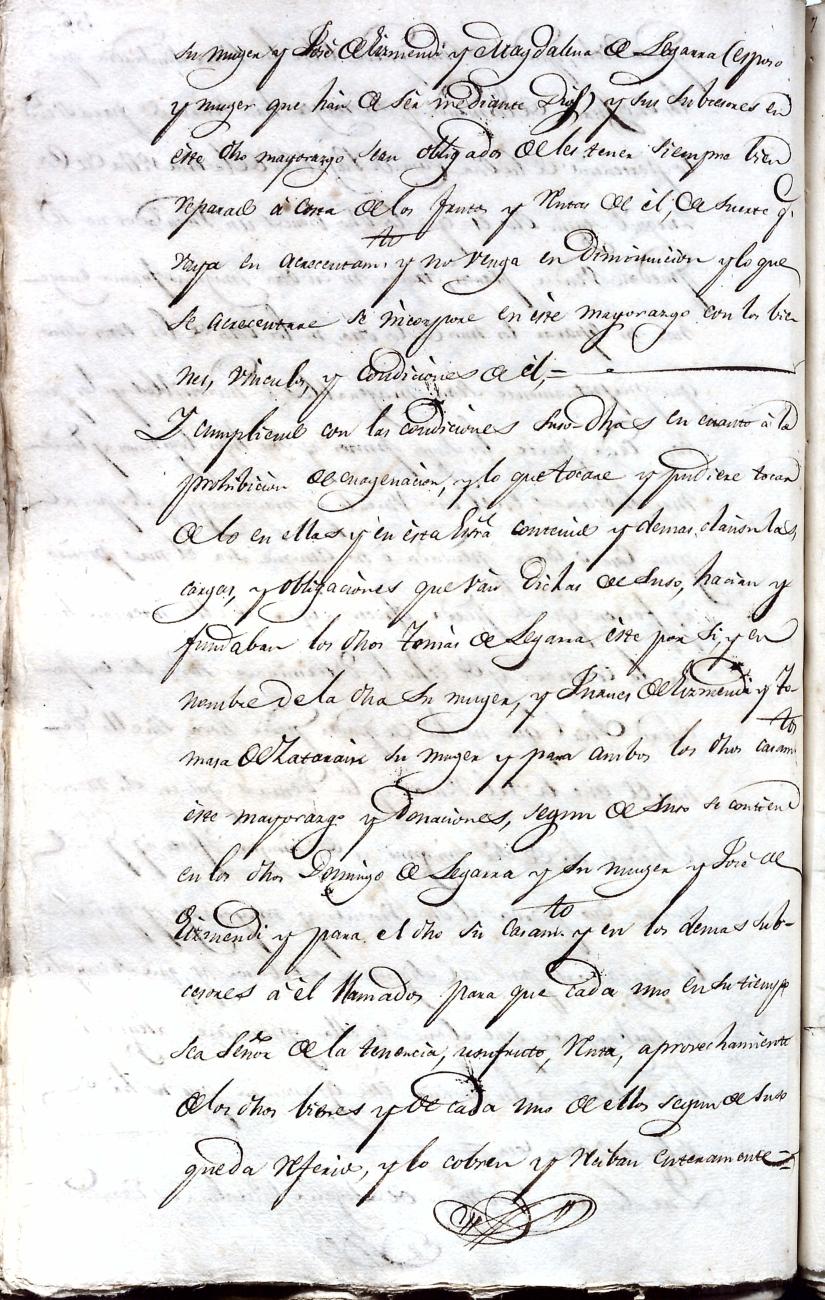 su muger y José de Eizmendi y Magdalena de Legarra (esposo
y muger que hán de sér mediante Dios) y sus subcesores en
éste dho mayorazgo sean obligados de les tener siempre bien
reparado á costa de los frutos y rentas de él, de suerte q.e
vaya en acrecentam.to y no venga en diminucion y lo que
se acrecentare se incorpore en éste mayorazgo con los bie-
nes, vinculos, y condiciones de él,=
Y cumpliendo con las condiciones suso-dhas en cuanto á la
prohibicion de enagenacion, y lo que tocare y pudiere tocar
de lo en ellas y en ésta Esrã contenido y demas cláusulas
cargas, y obligaciones que ván dichas de suso, hacian y
fundaban los dhos Tomás de Legarra éste por si, y en
nombre de la dha su muger, y Juanes de Eizmendi y To-
masa de Zatarain su muger y para ambos los dhos casam.tos
éste mayorázgo y donaciones, segun de suso se contiene
en los dhos Domingo de Legarra y su muger y José de
Eizmendi y para el dho su casam.to y en los demas sub-
cesores á él llamados para que cada uno en su tiempo
sea Señor de la tenencia, usufruto, renta, aprovechamiento
de los dhos bienes y de cada uno de ellos segun de suso
queda referido, y lo cobren y reciban enteramente=